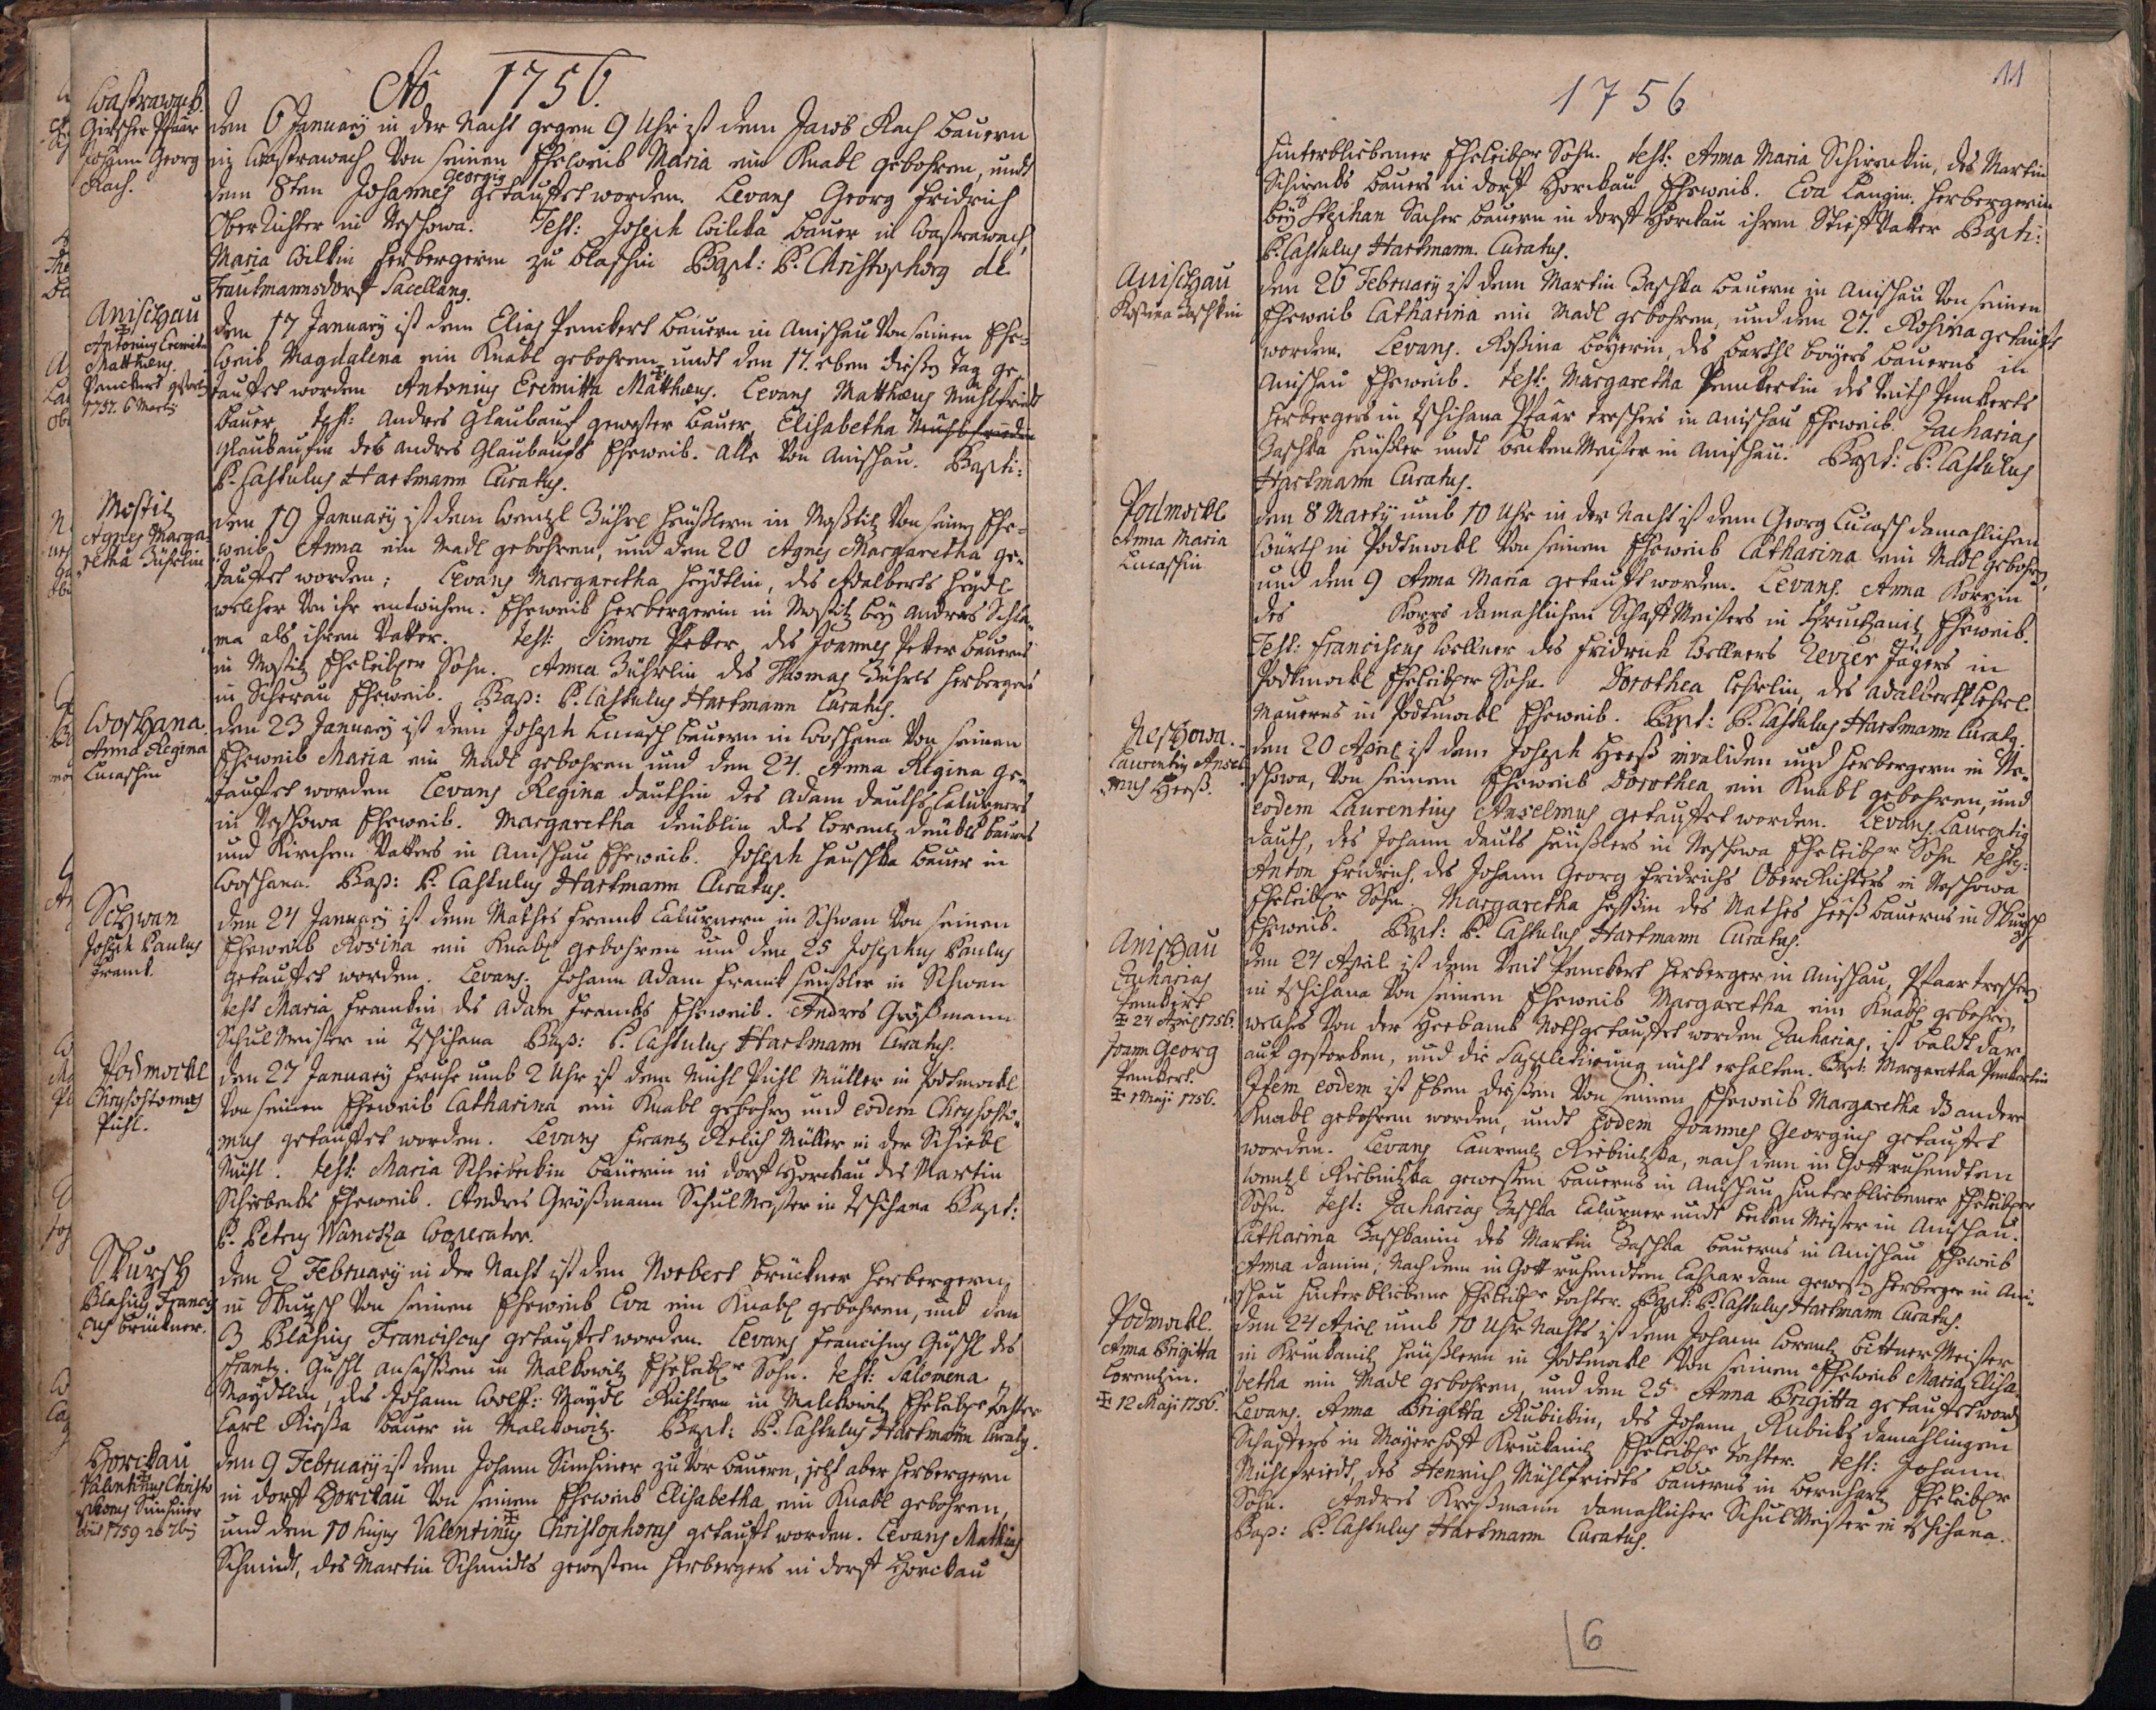 Ao 1756.
Wostrowach
Girscher Pfaar
Johann Georg
Rach.
den 6 January in der Nacht gegen 9 Uhr ist dem Jacob Rach bauern
in Wostrowach von seinen Eheweib Maria ein Knabl gebohren, undt
Georgius
den 8ten Johannes getauffet worden. Levans Georg Fridrich
Ober Richter in Neschowa. Test: Joseph Wilcka bauer in Wostrowach,
Maria Wilkin herbergerin zu Bapt: P. Christophorus de
Trautmannsdorf Sacellanus.
Anischau
Antonius Eremita
Matthæus
Penckert gestorben
1757. 6 Martij
den 17 January ist dem Elias Penckert bauern in Anischau von seinen Ehe-
weib Magdalena ein Knabl gebohren, undt den 17. eben dießen Tag ge-
tauffet worden Antonius Eremitta Matthæus. Levans Matthæus Mühlfriedt
bauer, Test: Andres Glaubauf gewester bauer, Elisabetha Mühlfriedin
Glaubaufin des Andres Glaubaufs Eheweib. Alle von Anischau. Bapti:
P. Castulus Hartmann Curatus.
Mostitz
Agnes Marga-
retha Zührlin
den 19 January ist dem Wentzl Zührl heüßlern in Mostitz von seinen Ehe-
weib Anna ein Madl gebohren, und den 20 Agnes Margaretha ge-
tauffet worden; Levans Margaretha Heydtlin, des Adalberts Heydl
welcher von ihr entwichen. Eheweib herbergerin in Mostitz bey Andres Schla-
ma als ihren Vatter. Test: Simon Petter des Joannes Petter bauerns
in Mostitz Eheleiber Sohn. Anna Zührlin des Thomas Zührls herbergers
in Scherau Eheweib. Bap: P. Castulus Hartmann Curatus.
Woshana.
Anna Regina
Lucaschin
den 23 January ist dem Joseph Lucasch bauern in Woshana von seinen
Eheweib Maria ein Madl gebohren und den 24. Anna Regina ge-
tauffet worden Levans Regina dauthin des Adam dauths Calupners
in Neschowa Eheweib. Margaretha deüblin des Lorentz deübls bauers
und Kirchen Vatters in Anischau Eheweib. Joseph Hauschka bauer in
Woshana. Bap: P. Castulus Hartmann Curatus.
Schwan
Joseph Paulus
Frank.
den 24 January ist dem Mathes Frank Calupnern in Schwan von seinen
Eheweib Rosina ein Knabl gebohren und den 25 Josephus Paulus
getauffet worden. Levans. Johann Adam Frank heüßler in Schwan
Test Maria Frankin des Adam Francks Eheweib. Andres Größmann
Schul Meister in Tschihana Bap: P. Castulus Hartmann Curatus.
Podmockl
Chrysostomus
Pichl.
den 27 January fruhe umb 2 Uhr ist dem Michl Pichl Müller in Podmockl
von seinen Eheweib Catharina ein Knabl gebohren und eodem Chrysosto-
mus getauffet worden. Levans Frantz Relich Müller in der Schiebl
Mühl. Test: Maria Schiebeckin bäuerin in dorf Horckau des Martin
Schiebecks Eheweib. Andres Größmann Schul Meister in Tschihana Bapt:
P. Petrus Wanczka Cooperator.
Skursch
Blasius Francis-
cus brückner.
den 2 February in der Nacht ist dem Norbert brückner herbergern,
in Skursch von seinen Eheweib Eva ein Knabl gebohren, und den
3 Blasius Franciscus getauffet worden. Levans Franciscus Guschl des
Frantz Guschl ansäßen in Malkowitz Eheleiber Sohn. Test: Salomena
Maydtlin, des Johann Wolff: Maydl Richtern in Malckowitz Eheleiber tochter
Carl Riesba bauer in Malckowitz. Bapt: P. Castulus Hartmann Curatus.
Horckau
Valentinus Christo-
phorus Simhiner
obiit 1759 26 7bris
den 9 February ist dem Johann Simhiner zuvor bauern, jetzt aber herbergern
in dorf Horckau von seinen Eheweib Elisabetha ein Knabl gebohren,
und den 10 hujus Valentinus Christophorus getauft worden. Levans Mathias
Schmidt, des Martin Schmidts gewesten herbergers in dorf Horckau
1756
11
hinterbliebener Eheleiber Sohn. Test: Anna Maria Schirenkin, des Martin
Schirenks bauers in dorf Horckau Eheweib. Eva Langin. herbergerin
bey Stephan Sacher bauern in dorf Horckau ihren Stief Vatter Bapti:
P. Castulus Hartmann. Curatus.
Anischau
Rosina Zaschkin
den 26 February ist dem Martin Zaschka bauern in Anischau von seinen
Eheweib Catharina ein Madl gebohren, und den 27. Rosina getauft
worden. Levans. Rosina boyerin, des barthl boyers bauerns in
Anischau Eheweib. Test: Margaretha Penckertin des Veith Penckerts
herbergers in Tschihana Pfaar treschers in Anischau Eheweib. Zacharias
Zaschka heüßler undt becken Meister in Anischau. Bapt: P. Castulus
Hartmann Curatus.
Podmockl
Anna Maria
Lucaschin
den 8 Marty umb 10 Uhr in der Nacht ist dem Georg Lucasch damahlichen
Würth in Podtmockl von seinen Eheweib Catharina ein Madl gebohren,
und den 9 Anna Maria getauft worden. Levans. Anna Korzin
des Korzs damahlichen Schaff Meisters in Krukanitz Eheweib.
Test: Franciscus Wellner des Fridrich Wellners Revier Jägers in
Podtmockl Eheleiber Sohn. Dorothea Lehrlin, des Adalberth Lehrl.
Mauerns in Podtmockl Eheweib. Bapt: P. Castulus Hartmann Curatus.
Neschowa.
Laurentius Ansel-
mus Heeß.
den 20 April ist dem Joseph Heeß invaliden und herbergern in Ne-
schowa, von seinen Eheweib Dorothea ein Knabl gebohren, und
eodem Laurentius Anselmus getauffet worden. Levans Laurentius
dauth, des Johann dauts heüßlers in Neschowa Eheleiber Sohn Testes:
Anton Fridrich, des Johann Georg Fridrichs Ober Richters in Neschowa
Eheleiber Sohn. Margaretha Heßin des Mathes Heeß bauerns in Skursch
Eheweib. Bapt: P. Castulus Hartmann Curatus.
Anischau
Zacharias
Penckert
24 April 1756.
Joann Georg
Penckert.
1 Maji 1756.
den 24 April ist dem Veit Penckert herberger in Anischau, Pfaar trescher
in Tschihana von seinen Eheweib Margaretha ein Knabl gebohren,
welches von der Heebamb Nothgetauffet worden Zacharias, ist baldt dar-
auf gestorben, und die Suppletirung nicht erhalten. Bapt: Margaretha Penckertin
Item eodem ist Eben dießen von seinen Eheweib Margaretha das andere
Knabl gebohren worden, undt Eodem Joannes Georgius getauffet
worden. Levans Laurentz Riebnitzka, nach dem in Gott ruhendten
Wentzl Riebnitzka gewesten bauerns in Anischau hinterbliebener Eheleiber
Sohn. Test: Zacharias Zaschka Calupner undt becken Meister in Anischau.
Catharina Zaschkanin des Martin Zaschka bauerns in Anischau Eheweib
Anna damin, nach dem in Gott ruhendten Caspar dam gewesten herberger in Ani-
schau hinterbliebene Eheleibe tochter. Bapt: P. Castulus Hartmann Curatus.
Podmockl.
Anna Brigitta
Lorentzin.
12 Maji 1756.
den 24 April umb 10 Uhr Nachts ist dem Johann Lorentz bittner Meister
in Krukanitz heüßlern in Podtmockl von seinen Eheweib Maria Elisa-
betha ein Madl gebohren, und den 25 Anna Brigitta getauffet worden
Levans. Anna Brigitta Kubickin, des Johann Kubicks damahlingen
Schaffers in Mayerhoff Kruckanitz Eheleibe tochter. Test: Johann
Mühlfriedt, des Henrich Mühlfriedts bauerns in Bernhartz Eheleiber
Sohn. Andres Kreßmann damahlicher Schul Meister in Tschihana.
Bap: P. Castulus Hartmann Curatus.
6